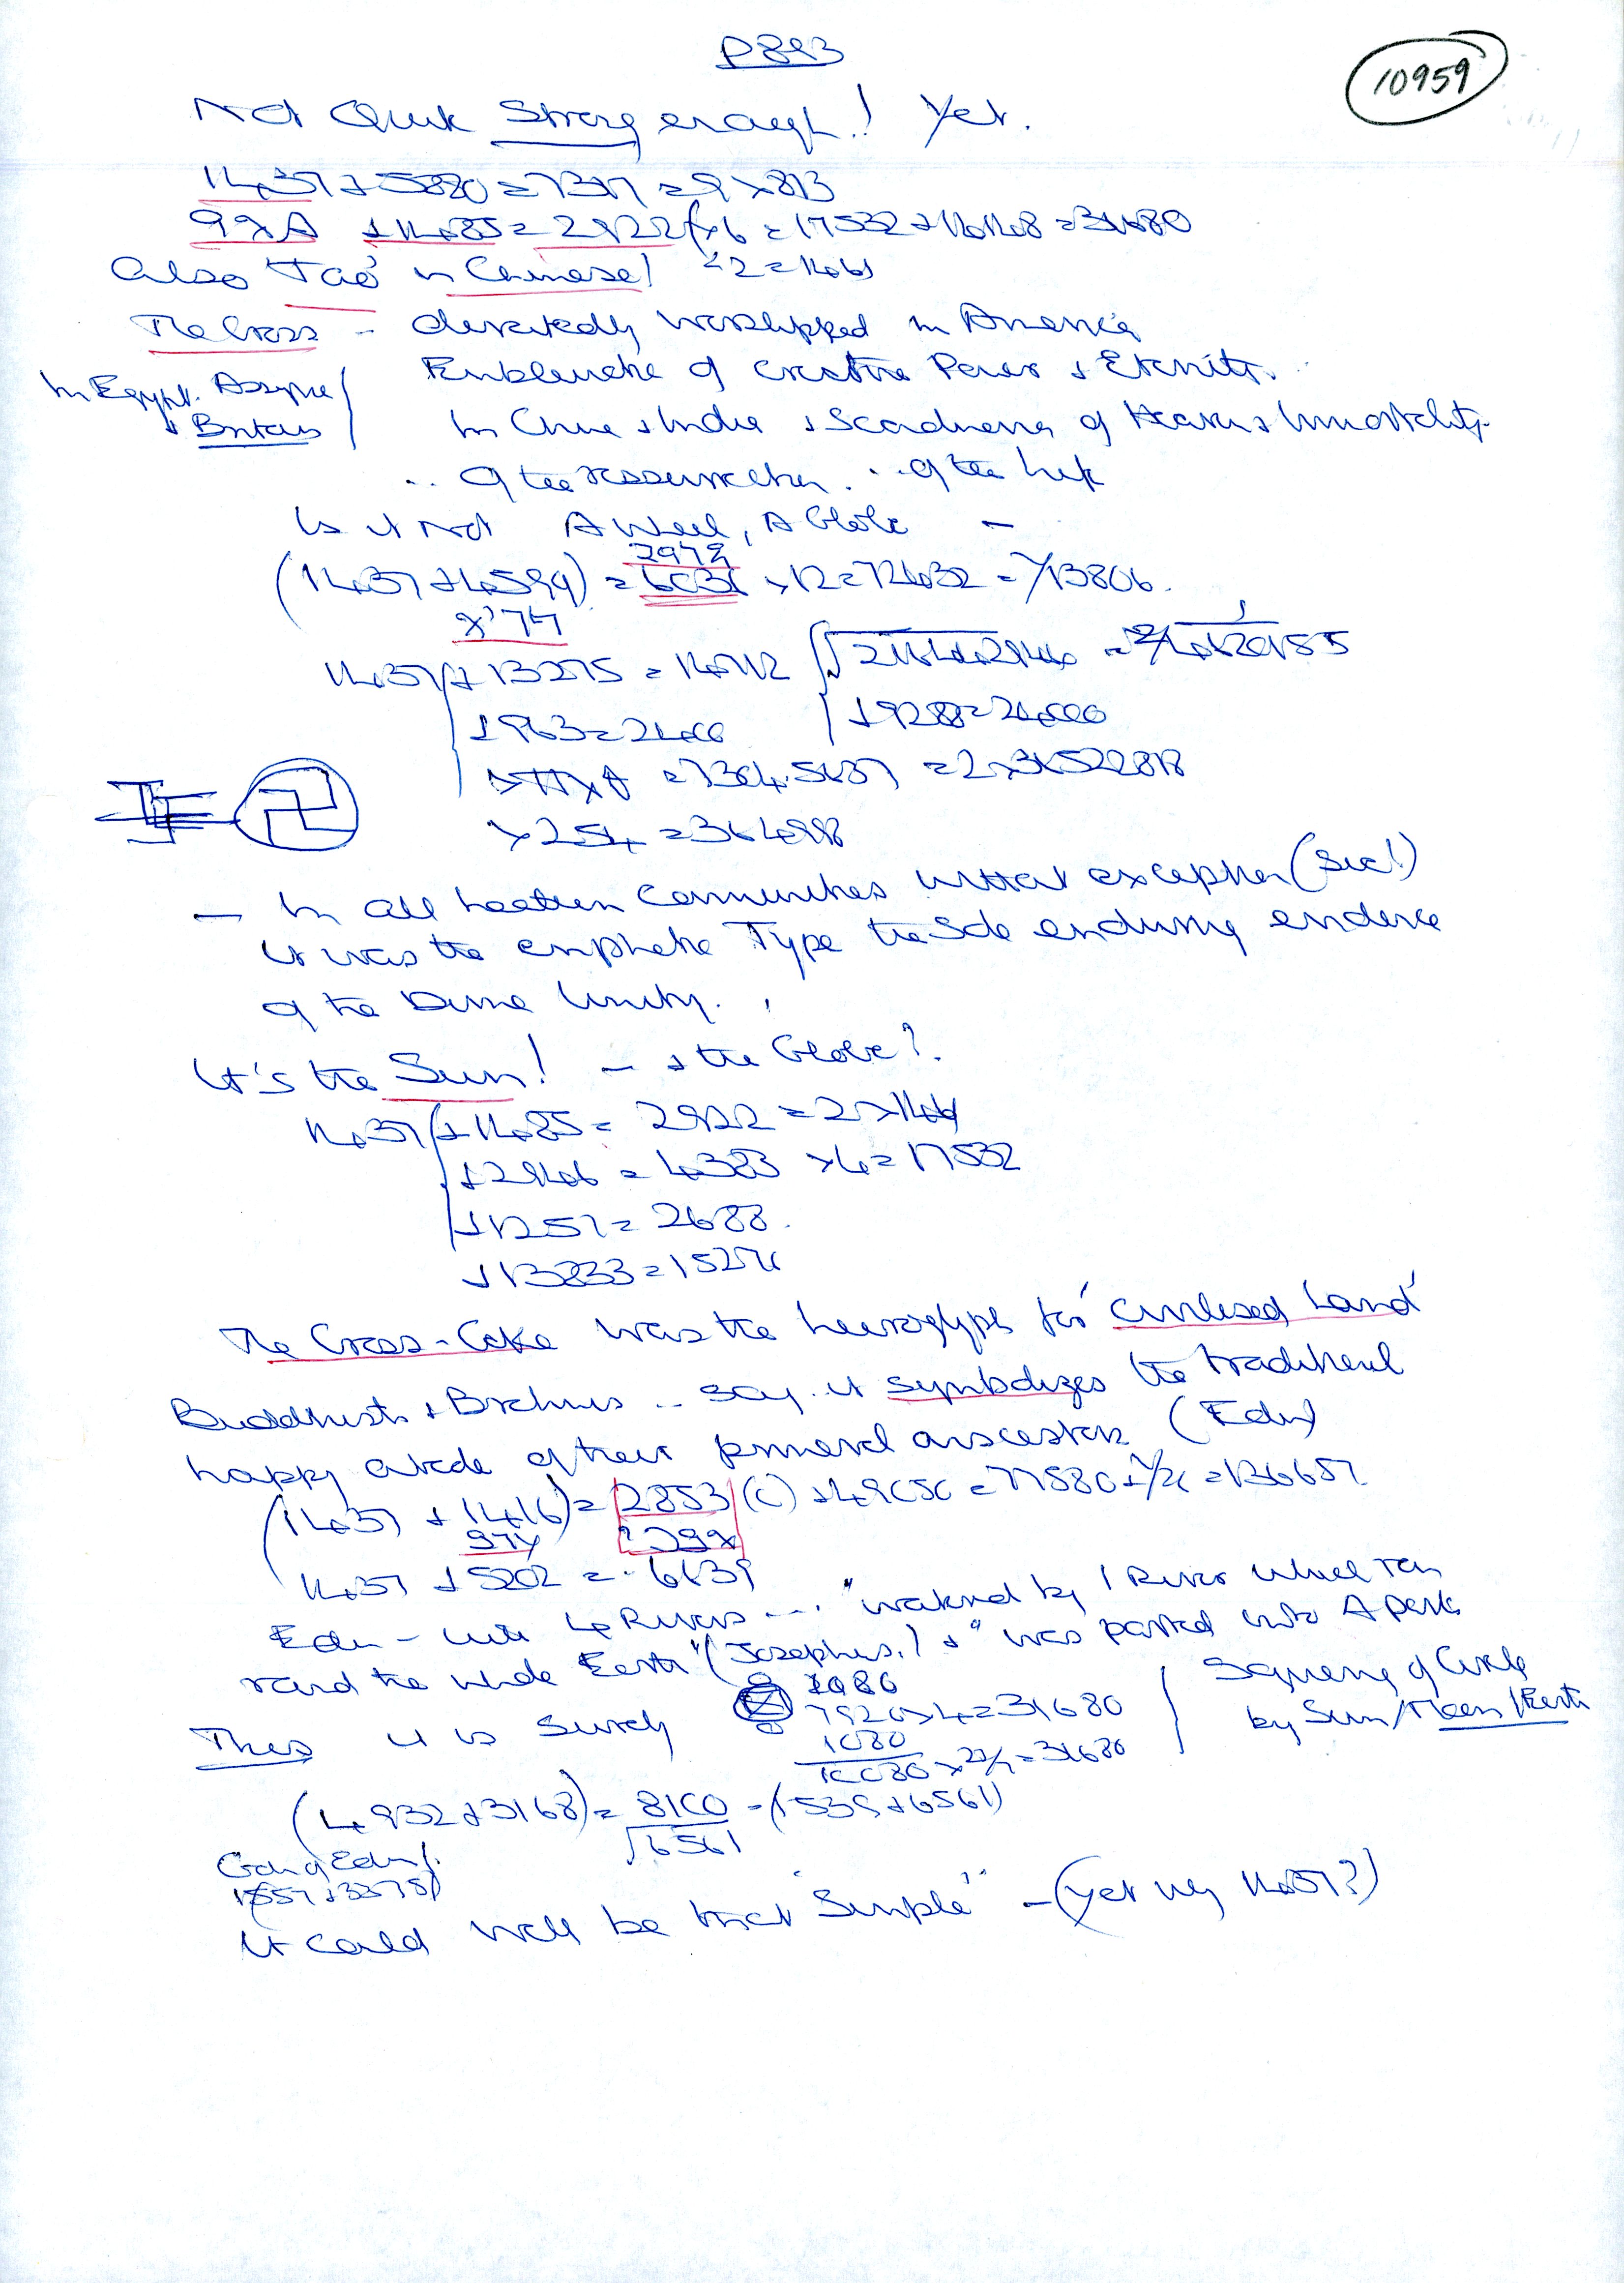 P893
10959
Not Quite Strong enough! Yet.
1437 + 5880 = 7317 = 9 × 813
99 × A + 1485 = 2922 (× 6 = 17532 + 14148 = 31680
Also 'Tao' in Chinese! ÷ 2 = 1461
The Cross - devotedly worshipped in America
In Egypt. Assyria
+ Britain
Emblematic of creative Power & Eternity.
In China & India & Scandinavia of Heaven & Immortality
.. Of the ressurection .. of the life
Is it not A Wheel, A Globe -
2979
(1437 + 4594) = 6031 × 12 = 72432 = 13806.
1437 + 13275 = 14712
+ 963 = 2400
+ 9288 = 24000
× 254 = 364998
- In all heathen Communities without exception (Sic!)
it was the emphatic Type the Sole enduring evidence
of the Divine Unity.
It's the Sun! - & the Globe?
1437 + 1485 = 2922 = 2 × 1461
+ 2946 = 4383 × 4 = 17532
+ 1251 = 2688.
+ 13833 = 15270
The Cross-Cake was the hieroglyph for 'Civilised Land'
Buddhists & Brahmins .. say it symbolizes the traditional
happy abode of their primeval ancestors (Eden)
(1437 + 1416) = 2853
1437 + 5202 = 6639
Eden - with 4 Rivers ... "watered by 1 River which ran
round the whole Earth" (Josephus.) & "was parted into 4 parts
Thus it is surely
1080
7920 × 4 = 31680
1080
10080 × 22/7 = 31680
Squaring of Circle
by Sun/Moon/Earth
(4932 + 3168) = 8100 = (1539 + 6561)
√6561
Gdn of Eden
(1557 + 3375)
It could well be that "Simple" - (yet why 1437?)